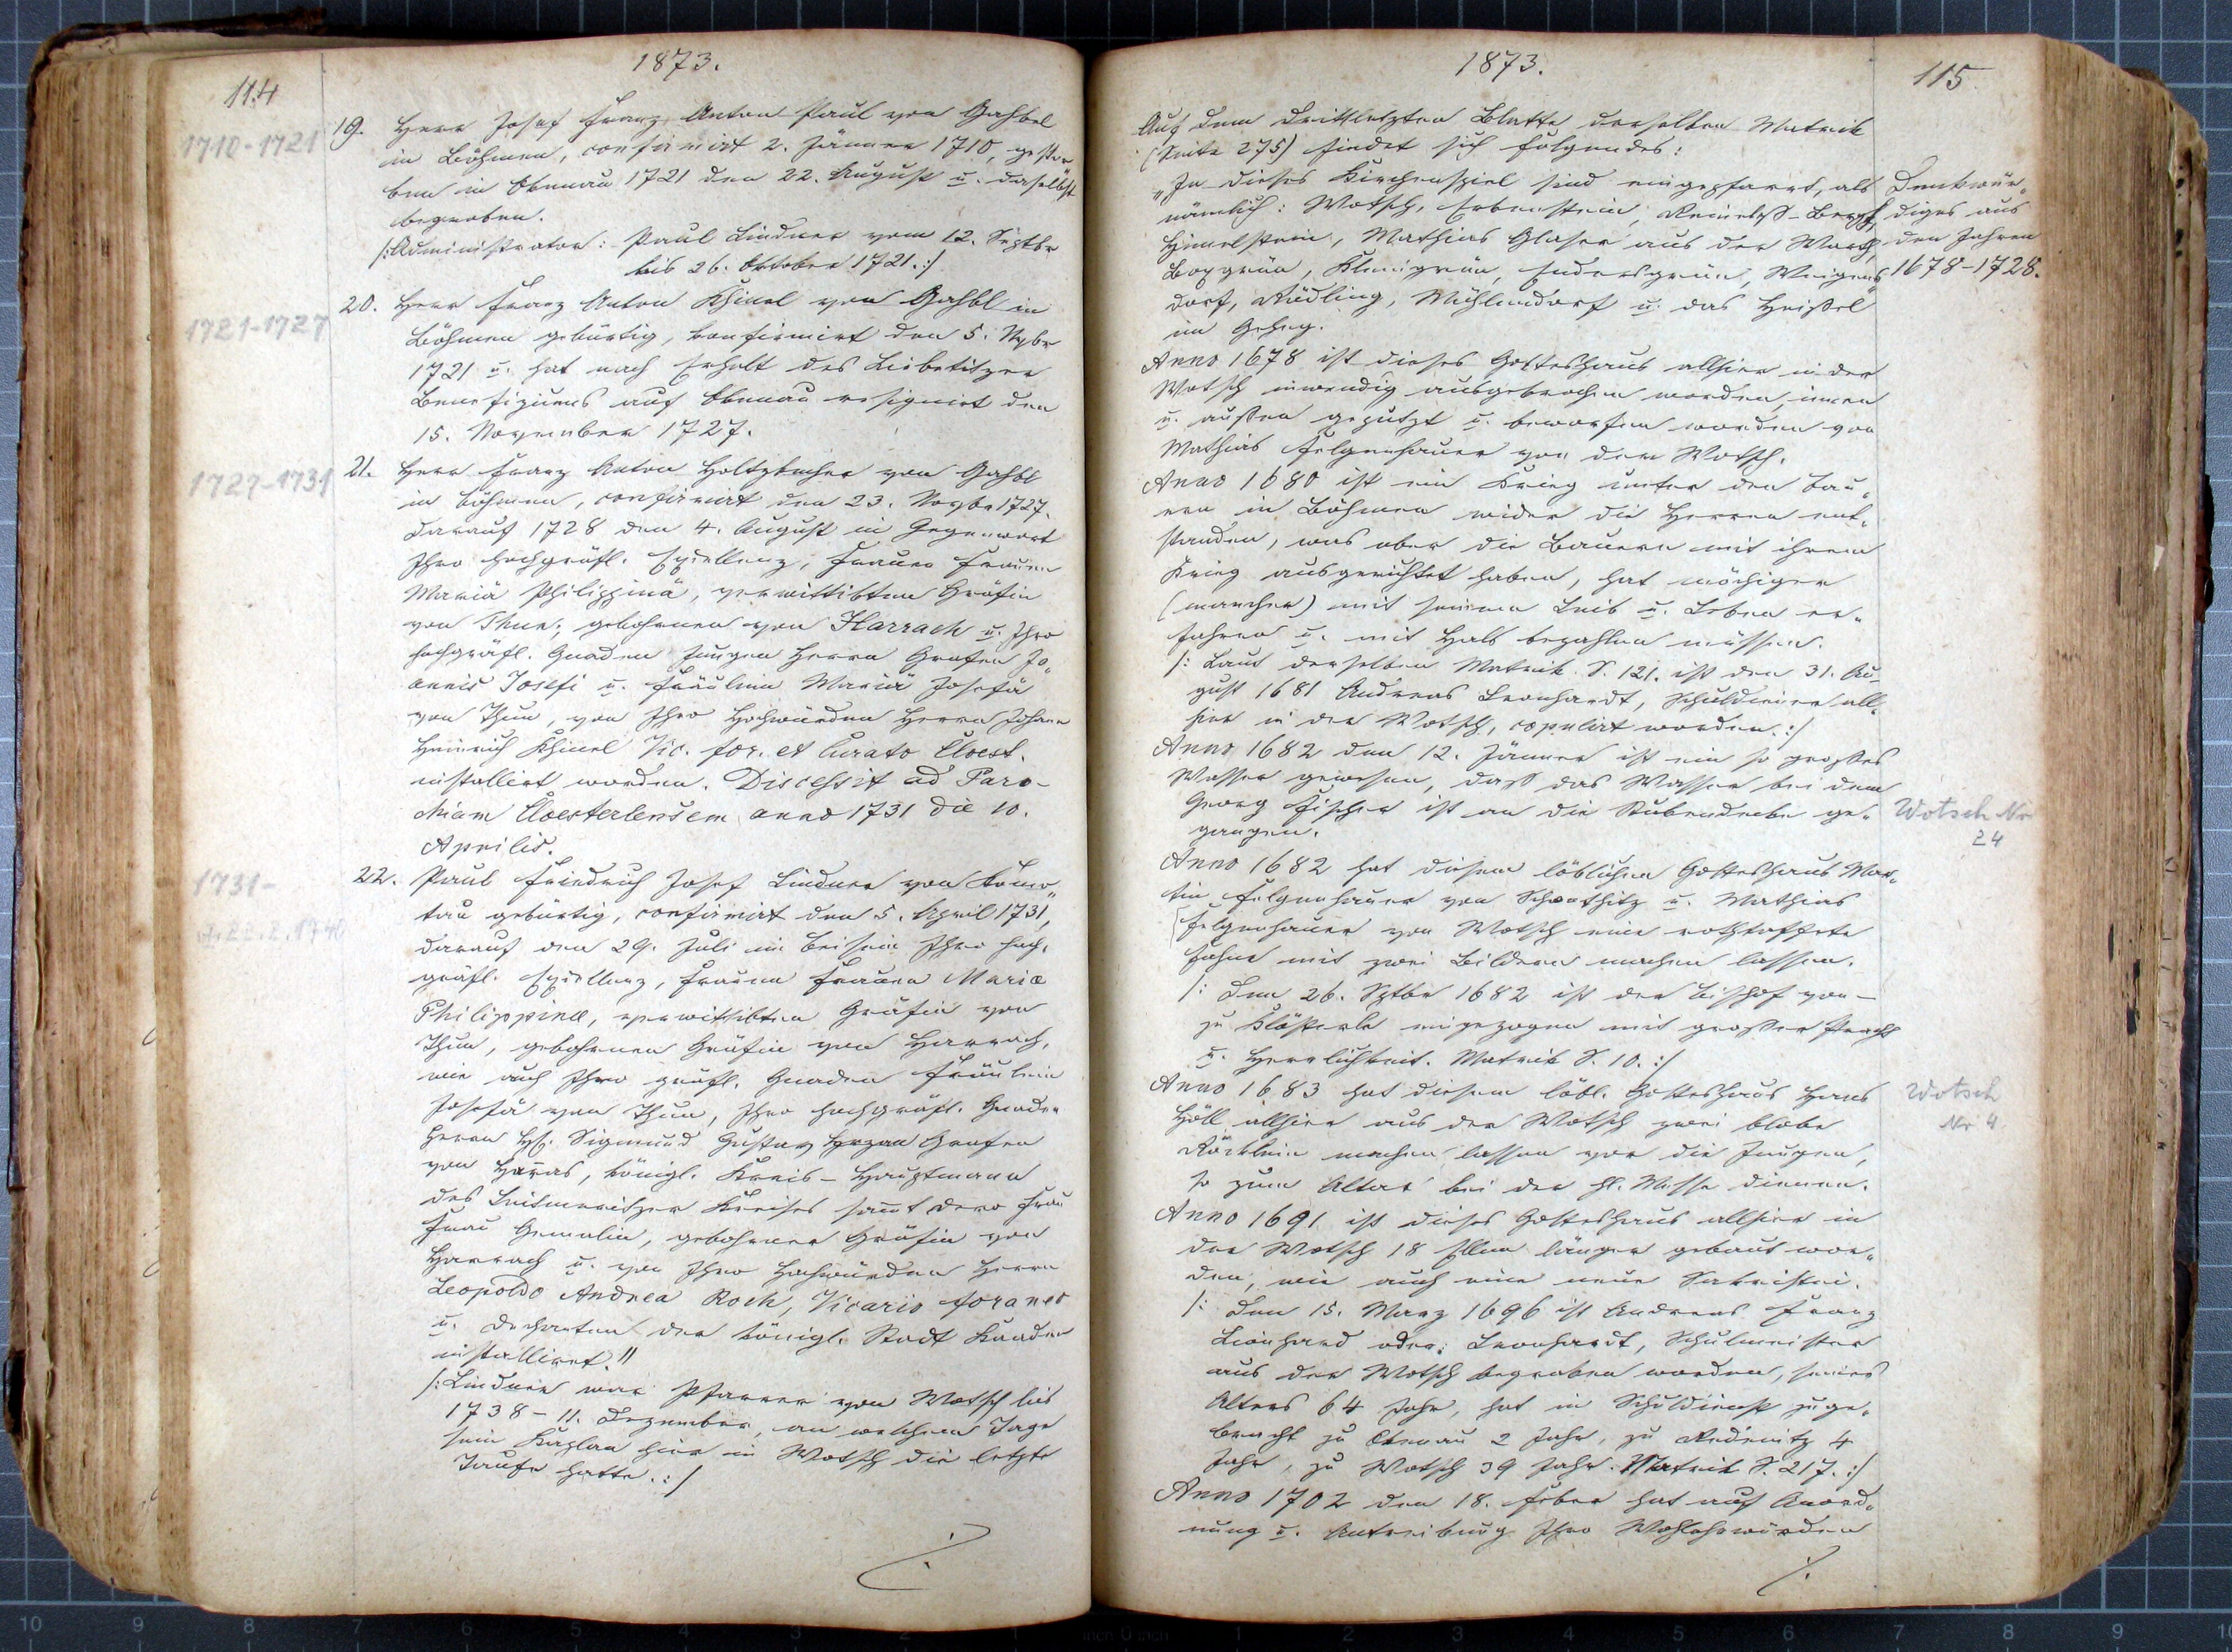 1873.
114
1710-1721
19. Herr Josef Franz Anton Paul von Gastl
in Böhmen, confirmirt 2. Jänner 1710, gestor„
ben in Obenau 1721 den 22. August u. daselbst
begraben.
/:Administrator: Paul Lindner vom 12. Septbr
bis 26. Oktober 1721.:/
1721-1727
20. Herr Franz Anton Khünl von Gastl in
Böhmen gebürtig, konfirmirt den 5. Nvbr
1721 u. hat nach Erhalt des Liebetitzer
Benefiziums auf Obenau resignirt den
15. November 1727.
1727-1731
21. Herr Franz Anton Holtzbecher von Gastl
in Böhmen, confirmirt den 23. Novbr 1727.
darauf 1728 den 4. August in Gegenwart
Ihro hochgräfl. Exzellenz, Frauen Frauen
Mariä Philippinä, verwittibten Gräfin
von Thun, gebohrnen von Harrach u. Ihro
hochgräfl. Gnaden jungen Herrn Grafen Jo„
annis Josefi u. Fräulein Mariä Josefä
von Thun, von Ihro Hochwürden Herrn Johann
Heinrich Khünl Vic. for. et Curato Cloest.
installirt worden. Discessit ad Paro-
chiam Cloesterlensem anno 1731 die 10.
Aprilis.
1731-
22. Paul Friedrich Josef Lindner von Komo„
tau gebürtig, confirmirt den 5. April 1731,
darauf den 29. Juli im Beisein Ihro hoch„
gräfl. Exzellenz, Frauen Frauen Mariæ
Philippinæ, verwittibten Gräfin von
Thun, gebohrnen Gräfin von Harrach,
wie auch Ihro gräfl. Gnaden Fräulein
Josefä von Thun, Ihro hochgräfl. Gnaden
Herrn Sigmund Gustav Grafen
von Hrzan, königl. Kreis-Hauptmann
des Leitmeritzer Kreises samt dero Frau
Frau Gemalin, gebohrner Gräfin von
Harrach u. von Ihro Hochwürden Herrn
Leopoldo Andrea Roch, Vicario foraneo
u. Dechanten der königl. Stadt Kaaden
installirt."
/:Lindner war Pfarrer von Wotsch bis
1738 - 11. Dezember, an welchem Tage
sein Kaplan hier in Wotsch die letzte
Taufe hatte.:/
./.
1873.
115
Auf dem drittletzten Blatte derselben Matrik
(Seite 275) findet sich folgendes:
„In dieses Kirchenspiel sind eingepfarrt, als
nämlich: Wotsch, Erbenstein, Reineless-Bergh,
Himelstein, Mathias Glaser aus der Warth,
Boxgrün, Kleingrün, Endersgrün, Weigens„
dorf, Rödling, Mühlendorf u. das Heißel
im Geheg.
Denkwür„
diges aus
den Jahren
1678-1728.
Anno 1678 ist dieses Gotteshaus allhier in der
Wotsch inwendig ausgebrochen worden, innen
u. außen geputzt u. beworfen worden von
Mathias Felgenhauer von der Wotsch.
Anno 1680 ist ein Krieg unter den Bau„
ern in Böhmen wider die Herren ent„
standen, was aber die Bauern mit ihrem
Krieg ausgerichtet haben, hat möchiger
(mancher) mit seinem Leib u. Leben er„
fahren u. mit Hals bezahlen müssen.
/: Laut derselben Matrik S. 121. ist den 31. Au„
gust 1681 Andreas Leonhardt, Schuldiener all„
hier in der Wotsch, copulirt worden.:/
Anno 1682 den 12. Jänner ist ein so großes
Wasser gewesen, daß das Wasser bei dem
Georg Fischer ist an die Stubendecke ge„
gangen.
Wotsch Nr
24
Anno 1682 hat diesem löblichen Gotteshaus Mar„
tin Felgenhauer von Schoathitz u. Mathias
Felgenhauer von Wotsch eine rothtaffete
Fahne mit zwei Bildern machen lassen.
/: Den 26. Sptbr 1682 ist der Bischof von –
zu Klösterle eingezogen mit großer Pracht
u. Herrlichkeit. Matrik S. 10.:/
Anno 1683 hat diesem löbl. Gotteshaus Hans
Höll allhier aus der Wotsch zwei blobe
Röcklein machen lassen vor die Jungen,
so zum Altar bei der hl. Messe dienen.
Wotsch
Nr 4
Anno 1691 ist dieses Gotteshaus allhier in
der Wotsch 18 Ellen länger gebaut wor„
den, wie auch eine neue Sakristei.
/: Den 15. März 1696 ist Andreas Franz
Lienhard oder: Leonhardt, Schulmeister
aus der Wotsch begraben worden, seines
Alters 64 Jahr, hat im Schuldienst zuge„
bracht zu Obenau 2 Jahr, zu Redenitz 4
Jahr, zu Wotsch 39 Jahr. Matrik S. 217.:/
Anno 1702 den 18. Feber hat auf Anord„
nung u. Antreibung Ihro Wohlehrwürden
./.